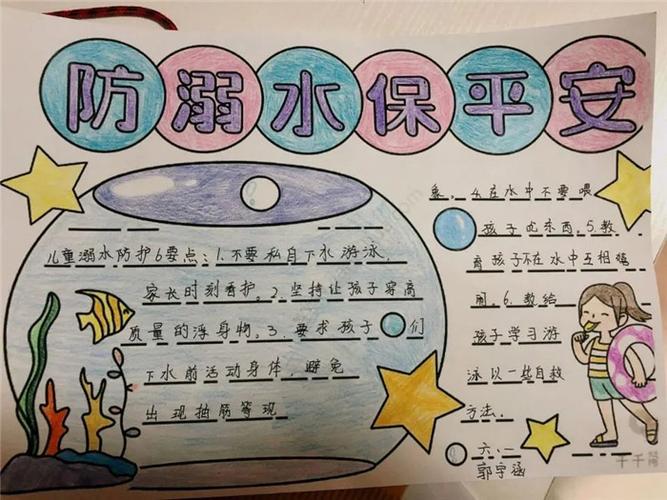 防溺水保平安
儿童溺水防护6要点:1.不要私自下水游泳,
家长时刻看护。2.坚持让孩子穿高
质量的浮身物。3.要求孩子们
下水前活动身体,避免
出现抽筋等现
象。4.在水中不要喂
孩子吃东西。5.教
育孩子不在水中互相嬉
闹。6.教给
孩子学习游
泳以一些自救
方法。
六、二
郭宇涵
千千